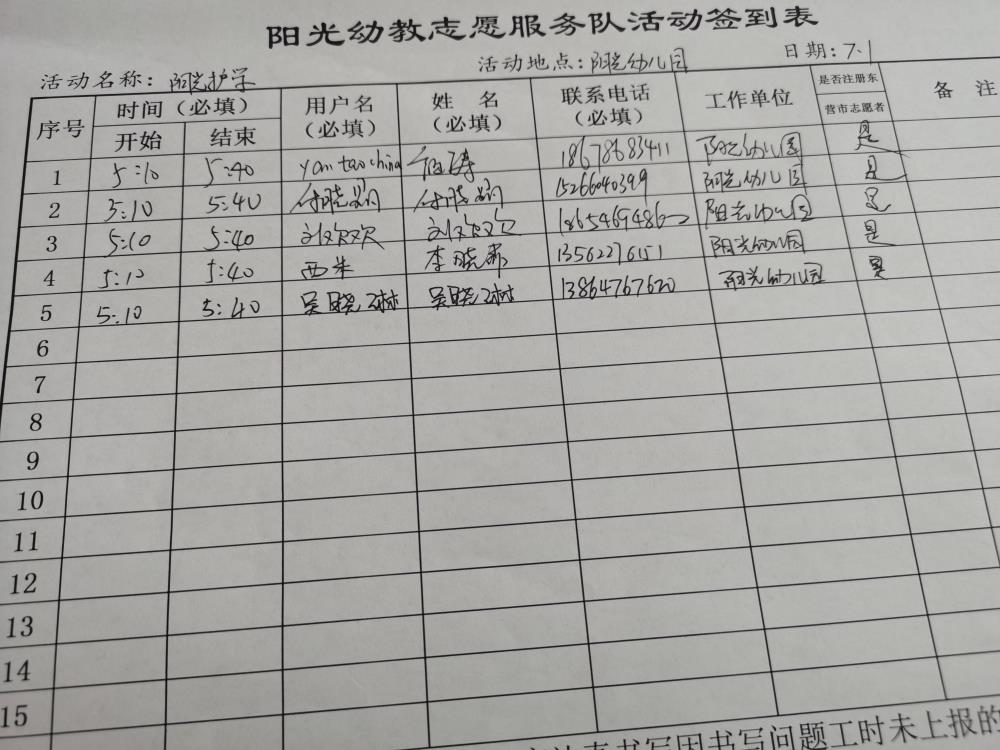 阳光幼教志愿服务队活动签到表
活动名称：阳光护学 活动地点：阳光幼儿园 日期：7.1
序号 时间（必填） 用户名（必填） 姓 名（必填） 联系电话（必填） 工作单位 是否注册东营市志愿者 备 注
开始 结束
1 5:10 5:40 yantaochina 涛 18678683411 阳光幼儿园 是
2 5:10 5:40 付晓 付晓 15266040399 阳光幼儿园 是
3 5:10 5:40 刘欢欢 刘欢欢 18654694860 阳光幼儿园 是
4 5:10 5:40 西朱 李晓 13562276151 阳光幼儿园 是
5 5:10 5:40 吴晓琳 吴晓琳 13864767620 阳光幼儿园 是
6
7
8
9
10
11
12
13
14
15
书写因书写问题工时未上报的